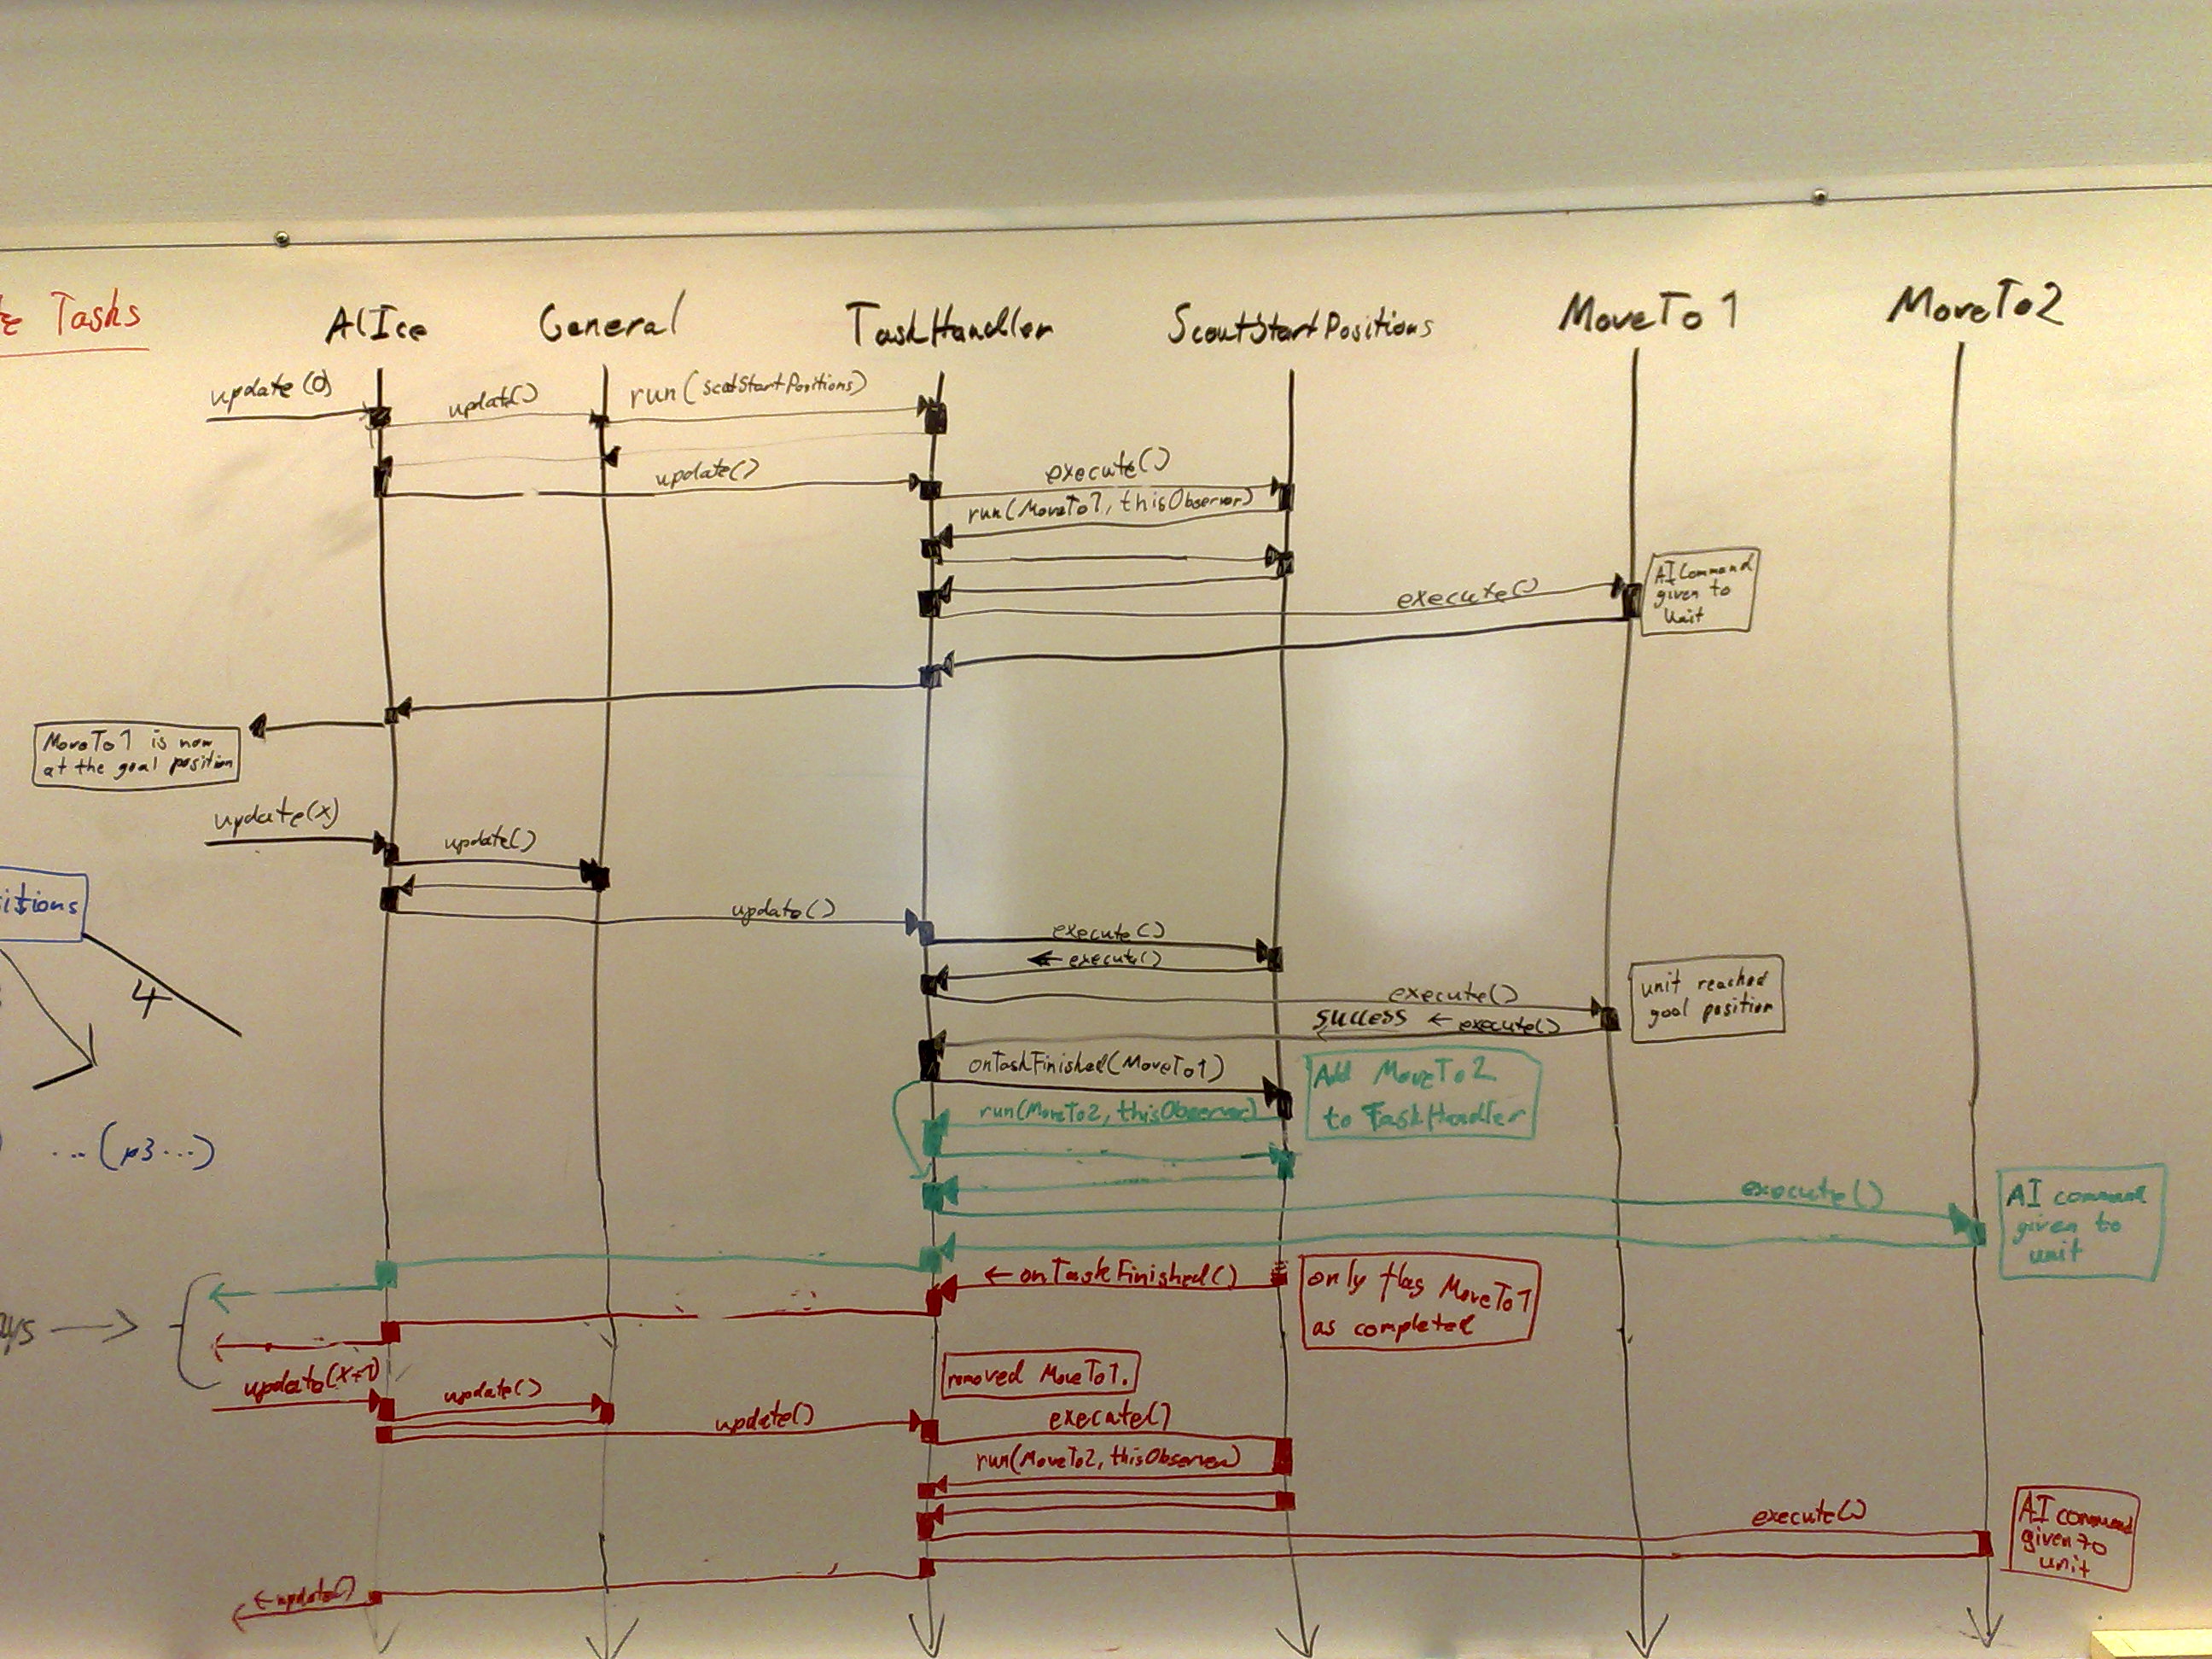 Tasks
AlIce
General
TaskHandler
ScoutStartPositions
MoveTo 1
MoveTo2
update(0)
update()
run(scoutStartPositions)
update()
execute()
run(MoveTo1, thisObserver)
execute()
AI Command
given to
Unit
MoveTo1 is now
at the goal position
update(x)
update()
update()
execute()
← execute()
execute()
unit reached
goal position
success ← execute()
onTaskFinished(MoveTo1)
Add MoveTo2
to TaskHandler
run(MoveTo2, thisObserver)
4
...(p3...)
execute()
AI command
given to
unit
← onTaskFinished()
only flag MoveTo1
as completed
removed MoveTo1.
update(x+1)
update()
update()
execute()
run(MoveTo2, thisObserver)
execute()
AI command
given to
unit
← update()